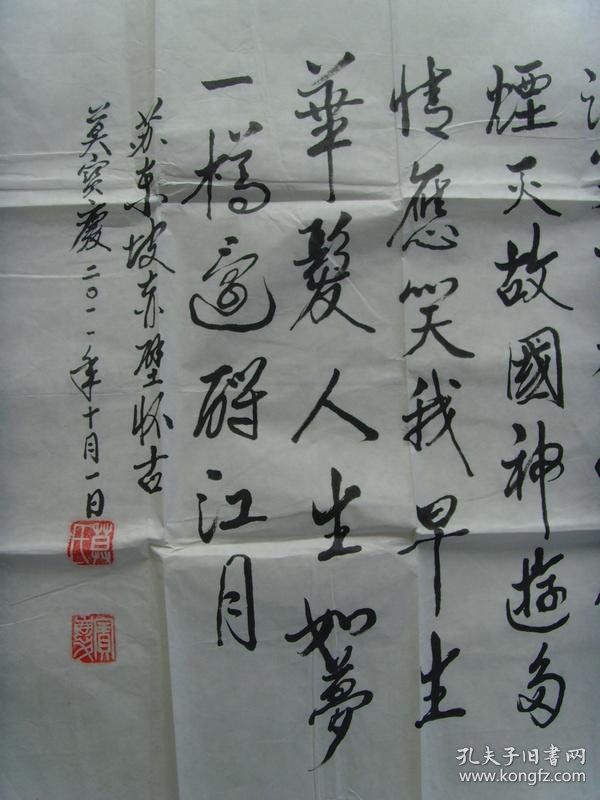 煙灭故國神遊多
情應笑我早生
華髮人生如夢
一樽還酹江月
苏東坡赤壁怀古
莫宝慶二〇一一年十月一日
莫氏
寶慶
孔夫子旧书网
www.kongfz.com